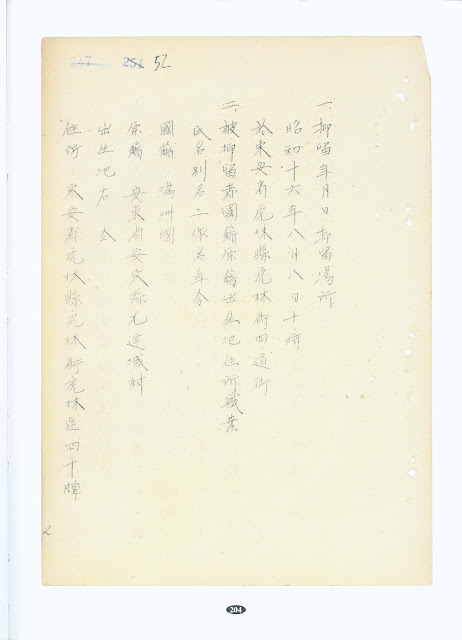 251 52
一 抑留年月日抑留場所
昭和十六年八月八日十時
於東安省虎林縣虎林街四道街
二、被抑留者國籍原籍出生地住所職業
氏名別名工作名年令
國籍 滿洲國
原籍 安東省安東縣九連城村
出生地右仝
住所 東安省虎林縣虎林街虎林區四十牌
2
204